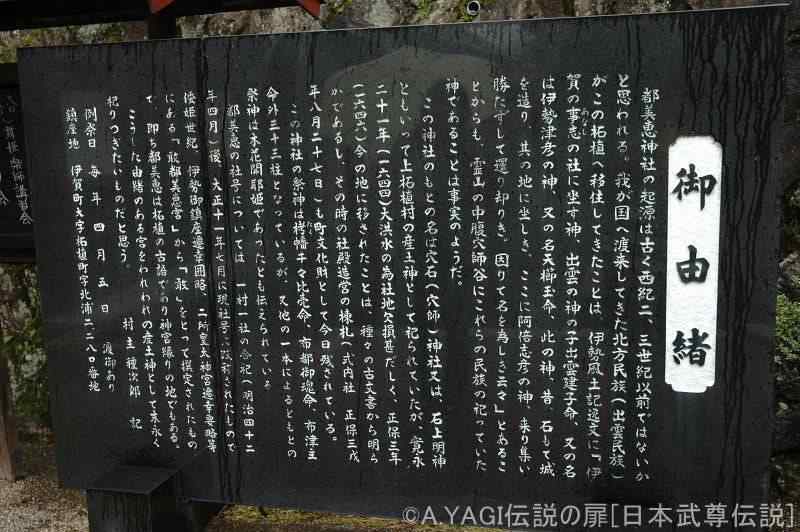 御由緒
都美恵神社の起源は古く西紀二、三世紀以前ではないか
と思われる。我が国へ渡来してきた北方民族(出雲民族)
がこの柘植へ移住してきたことは、伊勢風土記逸文に「伊
賀の事志の社に坐す神、出雲の神の子出雲建子命、又の名
は伊勢津彦の神、又の名天櫛玉命、此の神、昔、石もて城
を造り、其の地に坐しき、ここに阿倍志彦の神、来り集い
勝たずして還り却りき。因りて名を為しき云々」とあるこ
とからも、霊山の中腹穴師谷にこれらの民族の祀っていた
神であることは事実のようだ。
この神社のもとの名は穴石(穴師)神社又は、石上明神
ともいって上柘植村の産土神として祀られていたが、寛永
二十一年(一六四四)大洪水の為社地欠損甚だしく、正保三年
(一六四六)今の地に移されたことは、種々の古文書から明ら
かであるし、その時の社殿造営の棟札(式内社 正保三戌
年八月二十七日)も町文化財として今日残されている。
この神社の祭神は栲幡千々比売命、布都御魂命、布津主
命外三十三柱となっているが、又他の一本によるともとの
祭神は木花開耶姫であったとも伝えられている
都美恵の社号については 一村一社の合祀(明治四十二
年四月)後 大正十一年七月に現社号に改称されたもので
倭姫世紀 伊勢御鎮座遷幸囲略 二所皇太神宮遷幸要略等
にある「敢都美恵宮」から「敢」をとって撰定されたもの
で、即ち都美恵は柘植の古語であり神宮縁りの地でもある。
こうした由緒のある宮をわれわれの産土神として末永く
祀りつぎたいものだと思う。 村主種次郎 記
例祭日 毎年四月五日 渡御あり
鎮座地 伊賀町大字柘植町字北浦二二八〇番地
©A.YAGI伝説の扉[日本武尊伝説]